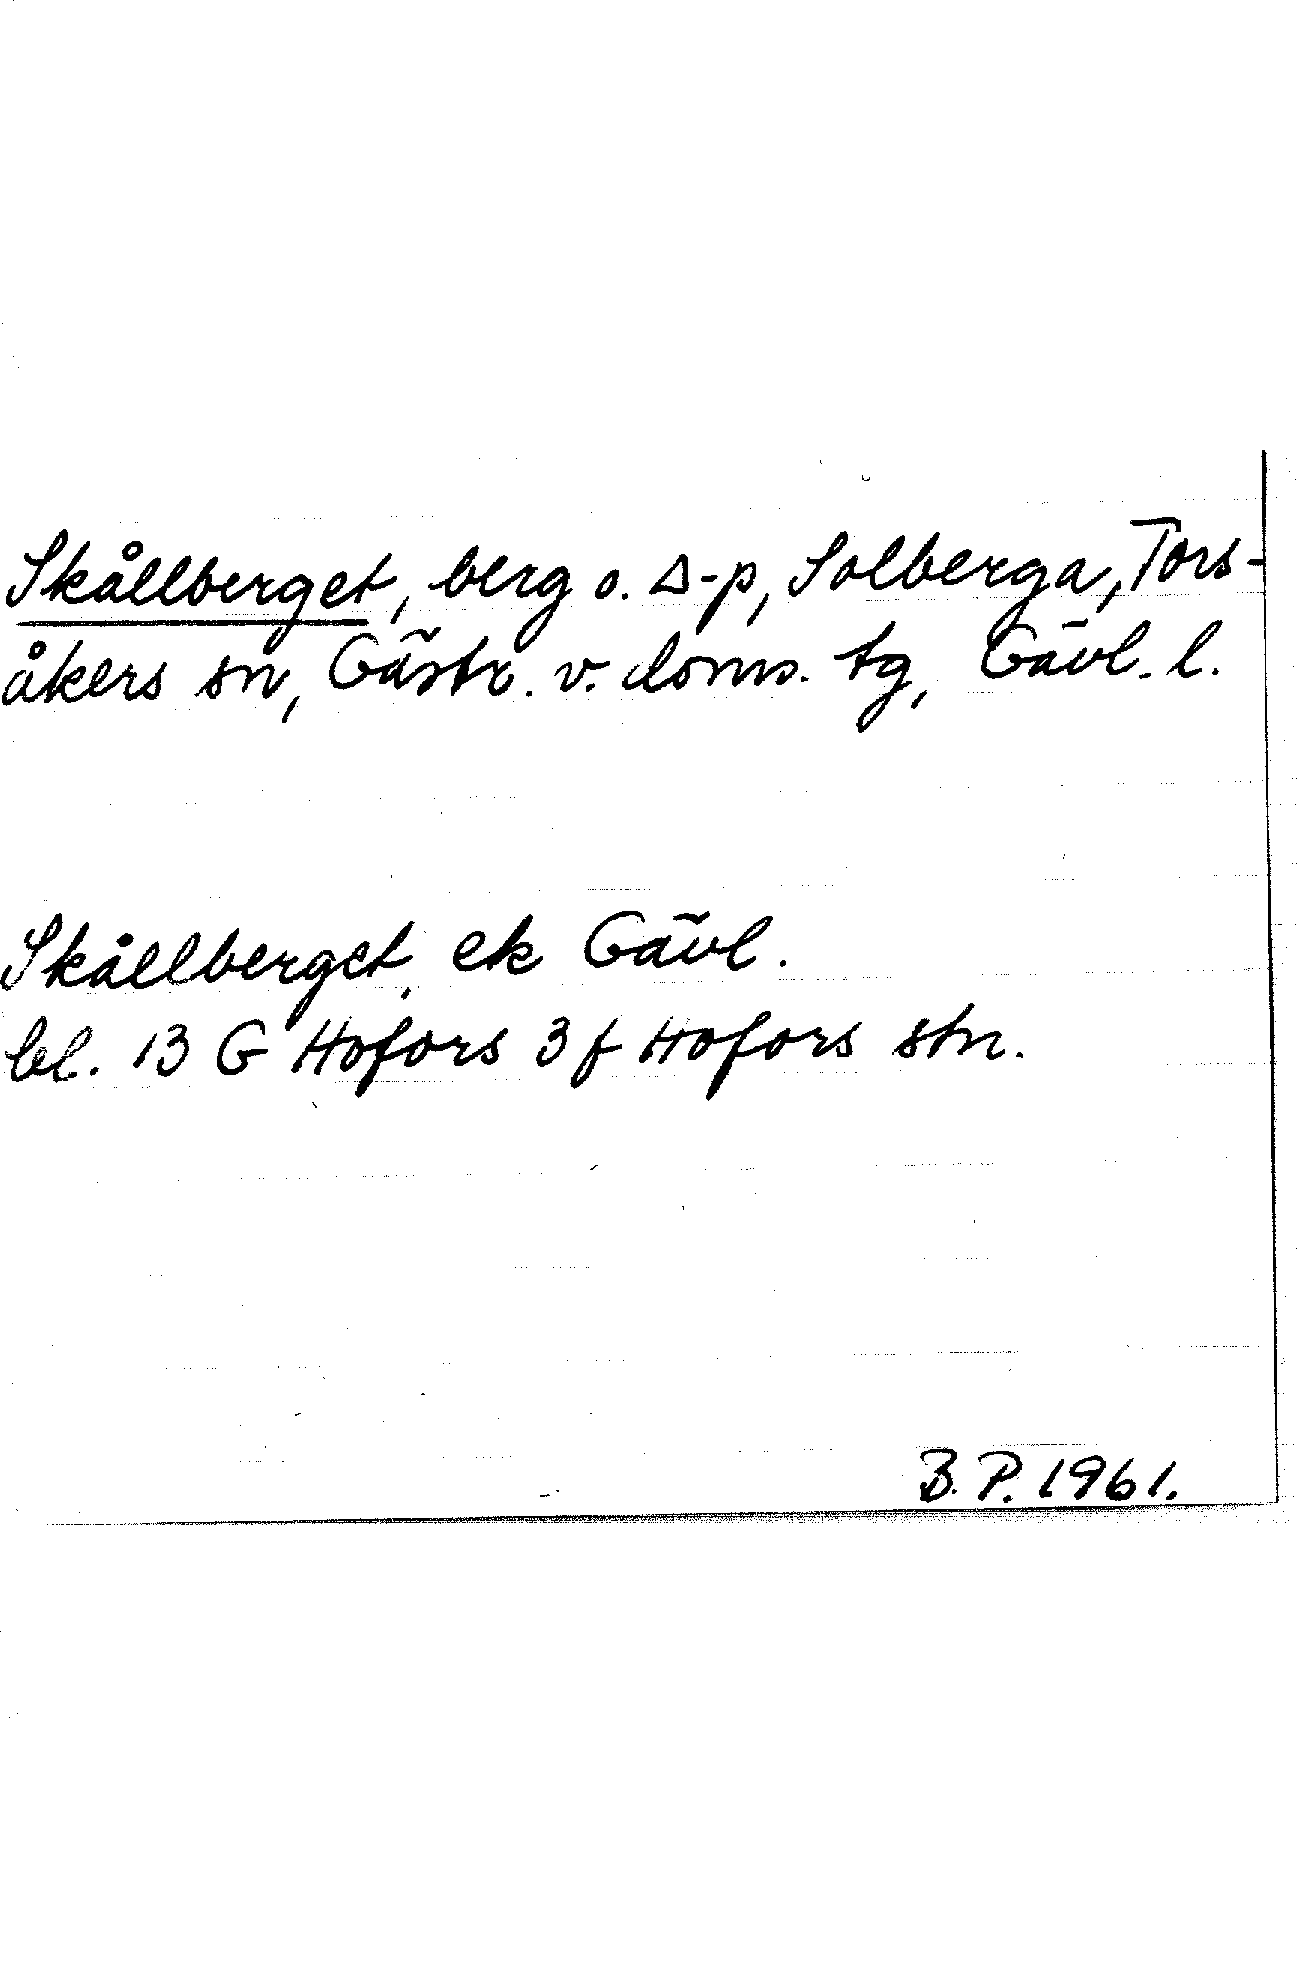 Skållberget, berg o. Δ-p, Solberga, Tors-
åkers sn, Gästr. v. doms. tg, Gävl. l.
Skållberget, ek Gävl.
bl. 13 G Hofors 3 f Hofors stn.
B. P. 1961.